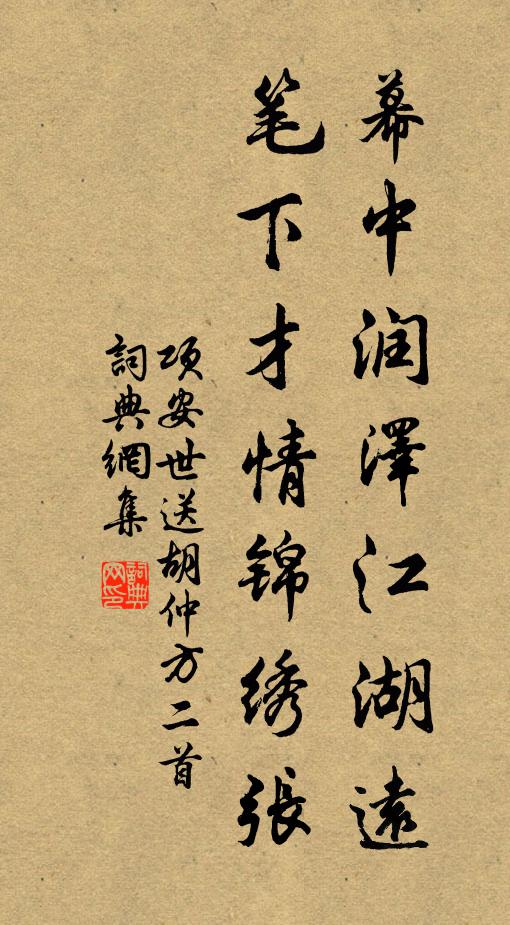 幕中润澤江湖遠
笔下才情锦绣張
项安世送胡仲方二首
詞典網集
詞典网印